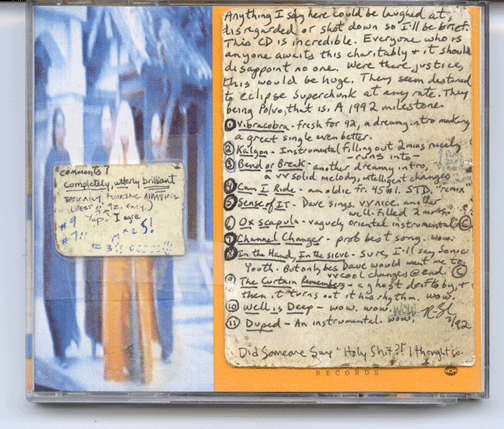 Anything I say here could be laughed at,
disregarded or shot down so I'll be brief.
This CD is incredible. Everyone who is
anyone awaits this charitably & it should
disappoint no one. Were there justice,
this would be huge. They seem destined
to eclipse Superchunk at any rate. They
being Polvo, that is. A 1992 milestone.
1 Vibracobra - fresh for 92, a dreamy intro making
a great single even better.
2 Kalgon - Instrumental filling out 2 mins nicely
- runs into -
3 Bend or Break - another dreamy intro,
a vv solid melody, intelligent changes
4 Can I Ride - an oldie fr. 45 #1. STD. "remix"
5 Sense of It - Dave sings, vv nice. another
well-filled 2 mins.
6 Ox scapula - vaguely oriental instrumental ©
7 Channel Changer - prob best song. wow.
8 In the Hand, In the sieve - sure, I'll say Sonic
Youth. But only bcs Dave would want me to
vv cool changes @ end. ©
9 The Curtain Remembers - a ghost drifts by, &
then it turns out it has rhythm. wow.
10 Well is Deep - wow. wow. wow.
11 Duped - An instrumental. wow.
/92
Did Someone Say "Holy Shit?!" I thought so.
RECORDS
comments?
completely, utterly brilliant
#9
"Yup" I agree